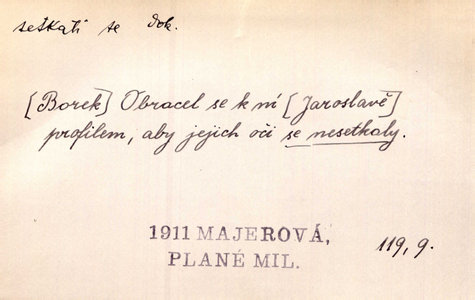 setkati se dok.
[Borek] Obracel se k ní [Jaroslavě]
profilem, aby jejich oči se nesetkaly.
1911 MAJEROVÁ,
PLANÉ MIL.
119, 9.